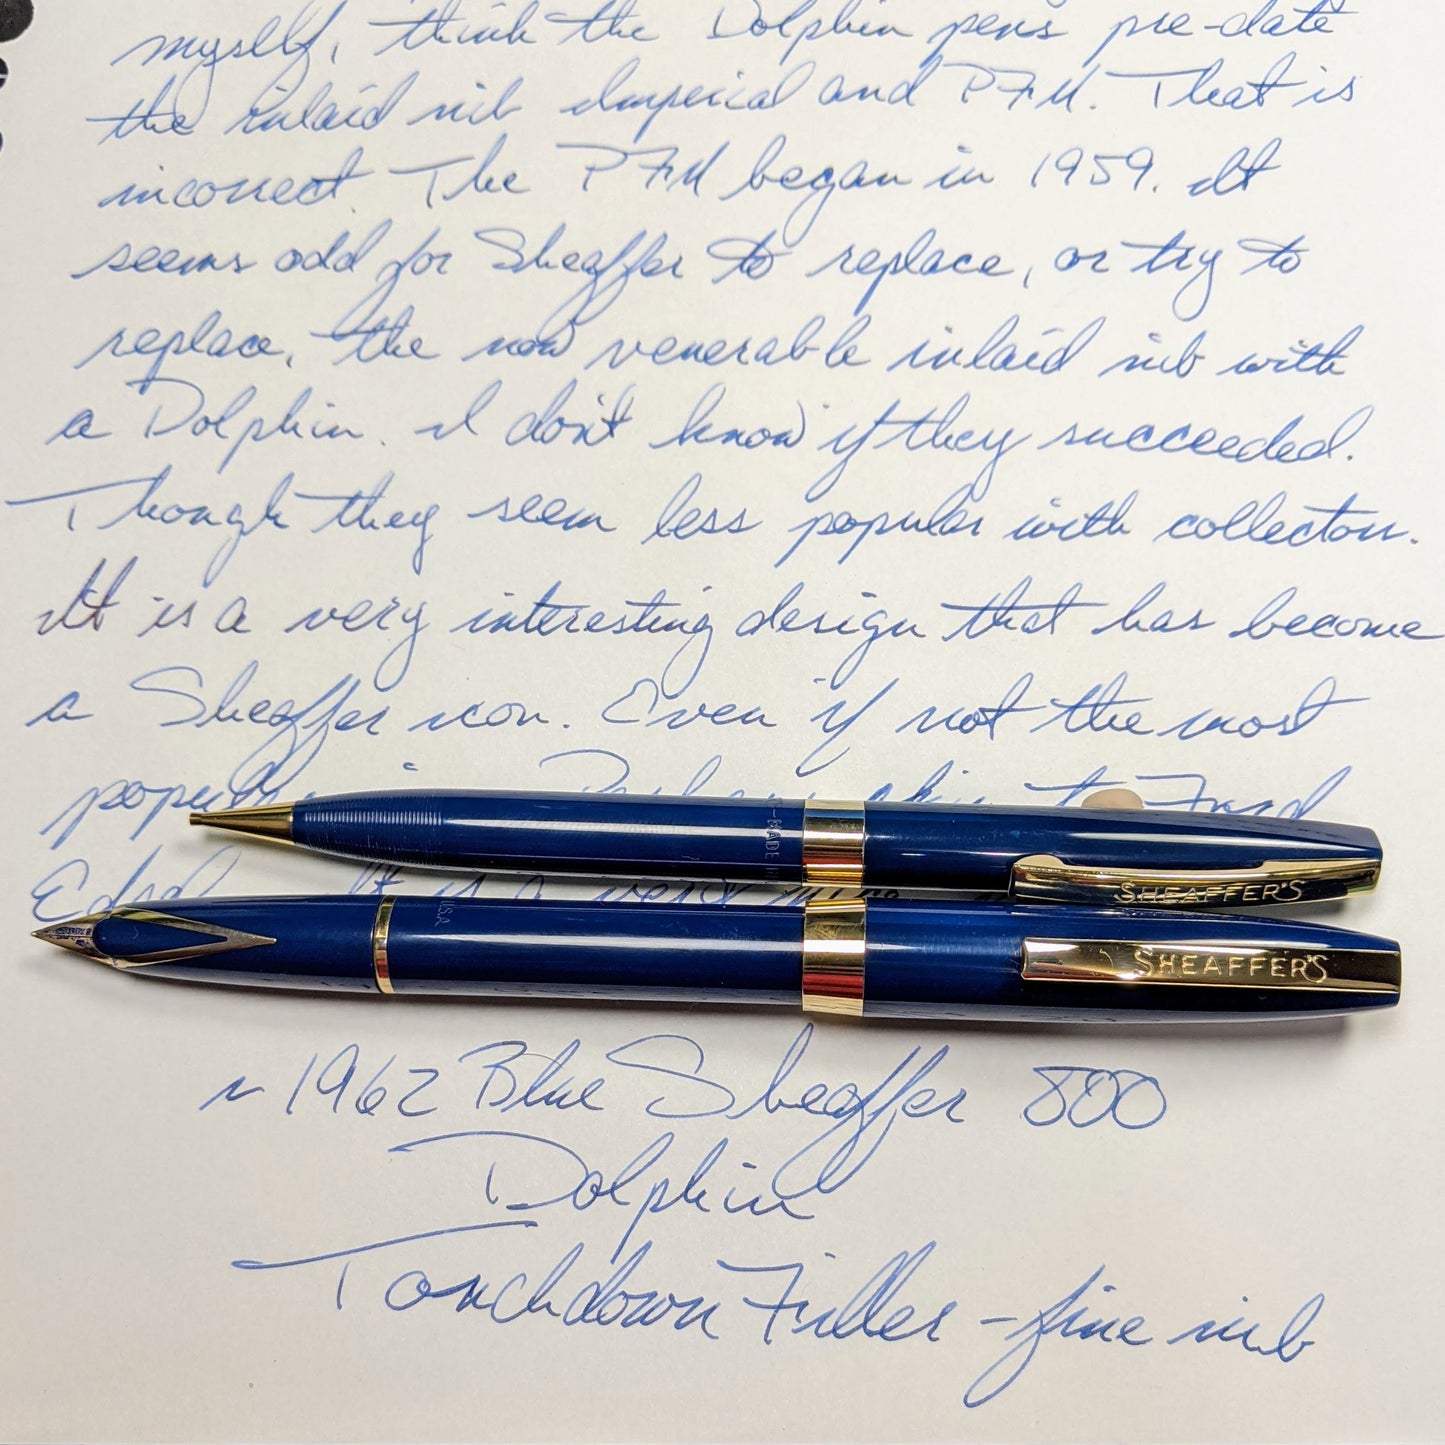 myself, think the Dolphin pens pre-date
the inlaid nib Imperial and PFM. That is
incorrect. The PFM began in 1959. It
seems odd for Sheaffer to replace, or try to
replace, the now venerable inlaid nib with
a Dolphin. I don't know if they succeeded.
Though they seem less popular with collectors.
It is a very interesting design that has become
a Sheaffer icon. Even if not the most
to Ford
It is a very nice
MADE IN
SHEAFFER'S
U.S.A.
SHEAFFER'S
~ 1962 Blue Sheaffer 800
Dolphin
Touchdown Filler - fine nib